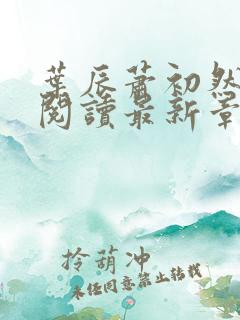 葉辰蕭初然
閱讀最新章
拎葫冲
未经同意禁止转载